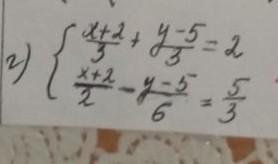 г) { (x+2)/3 + (y-5)/3 = 2
(x+2)/2 - (y-5)/6 = 5/3